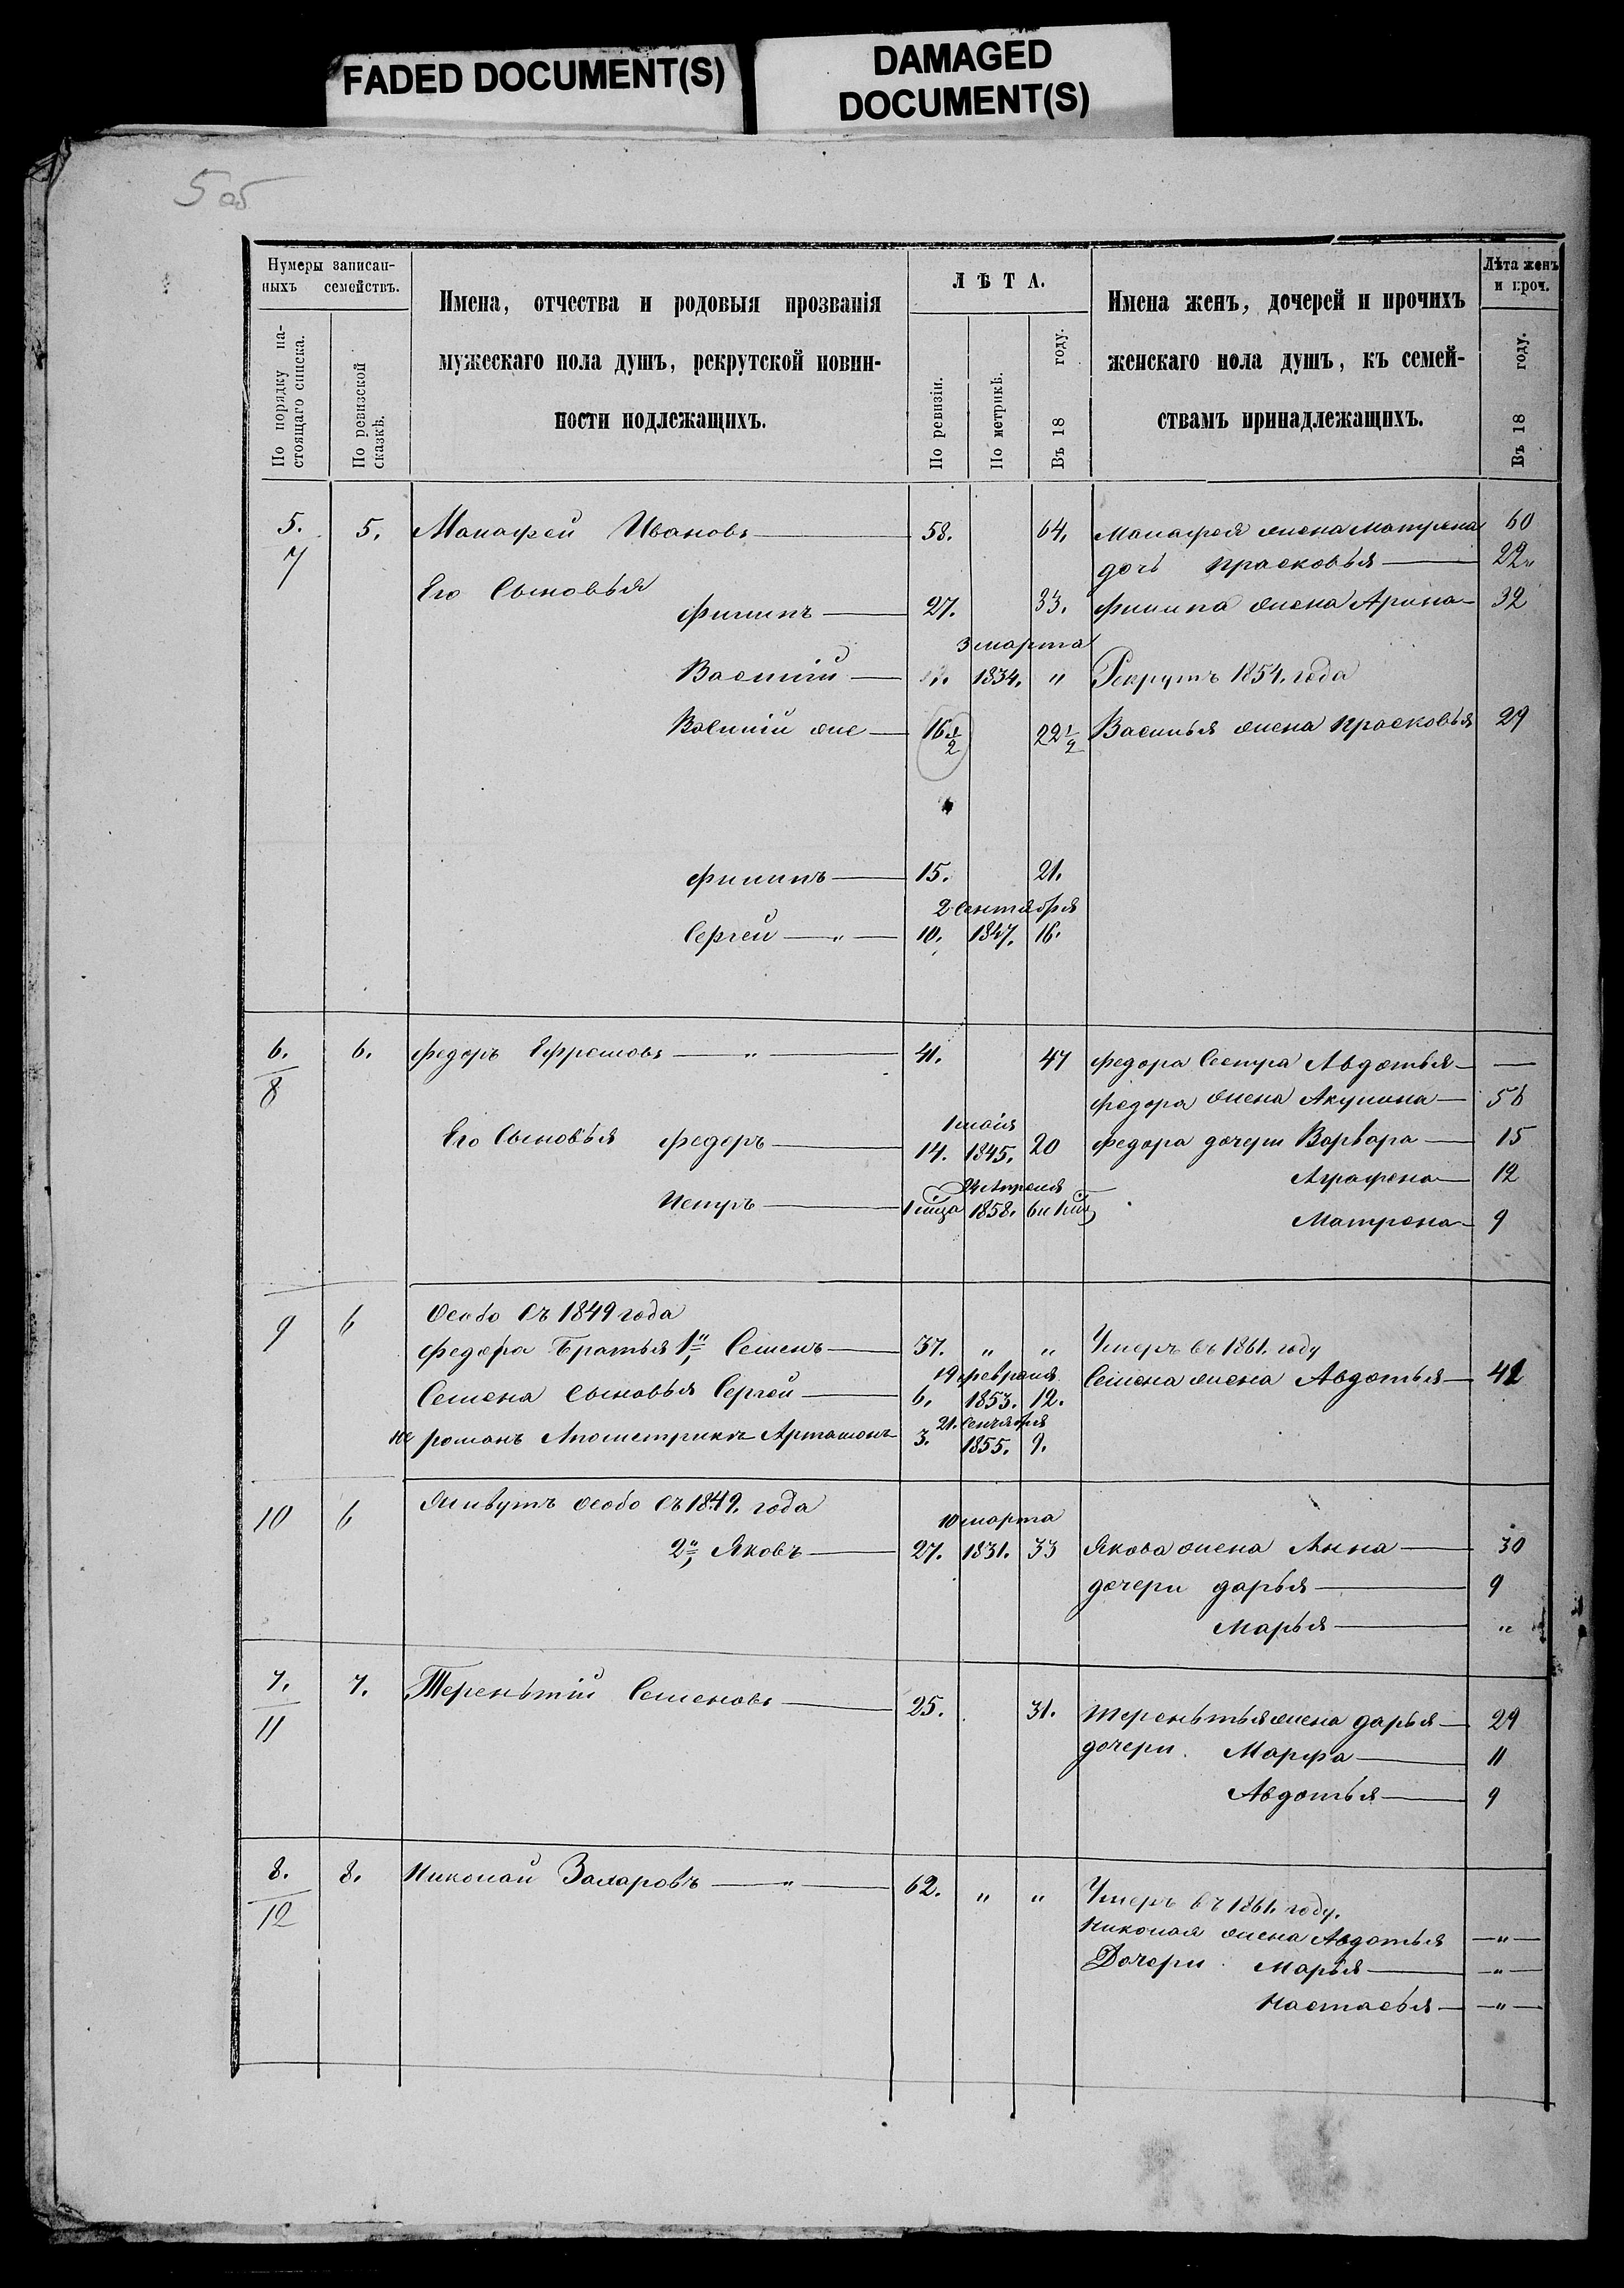 FADED DOCUMENT(S)
DAMAGED
DOCUMENT(S)
5 об
Нумеры записан-
ныхъ семействъ.
По порядку на-
стоящаго списка.
По ревизской
сказкѣ.
Имена, отчества и родовыя прозванія
мужескаго пола душъ, рекрутской повин-
ности подлежащихъ.
ЛѢТА.
По ревизіи.
По метрикѣ.
Въ 18 году.
Имена женъ, дочерей и прочихъ
женскаго пола душъ, къ семей-
ствамъ принадлежащихъ.
Лѣта женъ
и проч.
Въ 18 году.
5. 5. Манафей Ивановъ 58. 64. Манафея жена Матрена 60
7 дочь Прасковья 22"
Его Сыновья
Филипъ 27. 33. Филипа жена Арина 32
3 марта
Василій 1834. " Рекрутъ 1854. года
Василій же 16 1/2 22 1/2 Василья жена Прасковья 29
Филипъ 15. 21.
2 Сентября
Сергей " 10. 1847. 16.
6. 6. Федоръ Ефремовъ " 41. 47 Федора Сестра Авдотья —
8 Федора жена Акулина 56
1 мая
Его Сыновья Федоръ 14. 1845. 20 Федора дочери Варвара 15
Аграфена 12
24 Апреля
Петръ 1 мца 1858. 6 и 1 мц
Матрена 9
9 6 Особо съ 1849 года
Федора Братья 1й Семенъ 37. " " Умеръ въ 1861. году
19 февраля
Семена Сыновья Сергей 6. 1853. 12. Семена жена Авдотья 42
21. Сентября
романъ Апометрикѣ Артамонъ 3. 1855. 9.
10 6 Живутъ особо съ 1849. года
10 марта
2й Яковъ 27. 1831. 33 Якова жена Анна 30
дочери дарья 9
Марья "
7. 7. Терентій Семеновъ 25. 31. Терентья жена дарья 29
11 дочери Марфа 11
Авдотья 9
8. 8. Николай Захаровъ " 62. " " Умеръ въ 1861. году.
12 Николая жена Авдотья "
Дочери Марья "
Настасья "